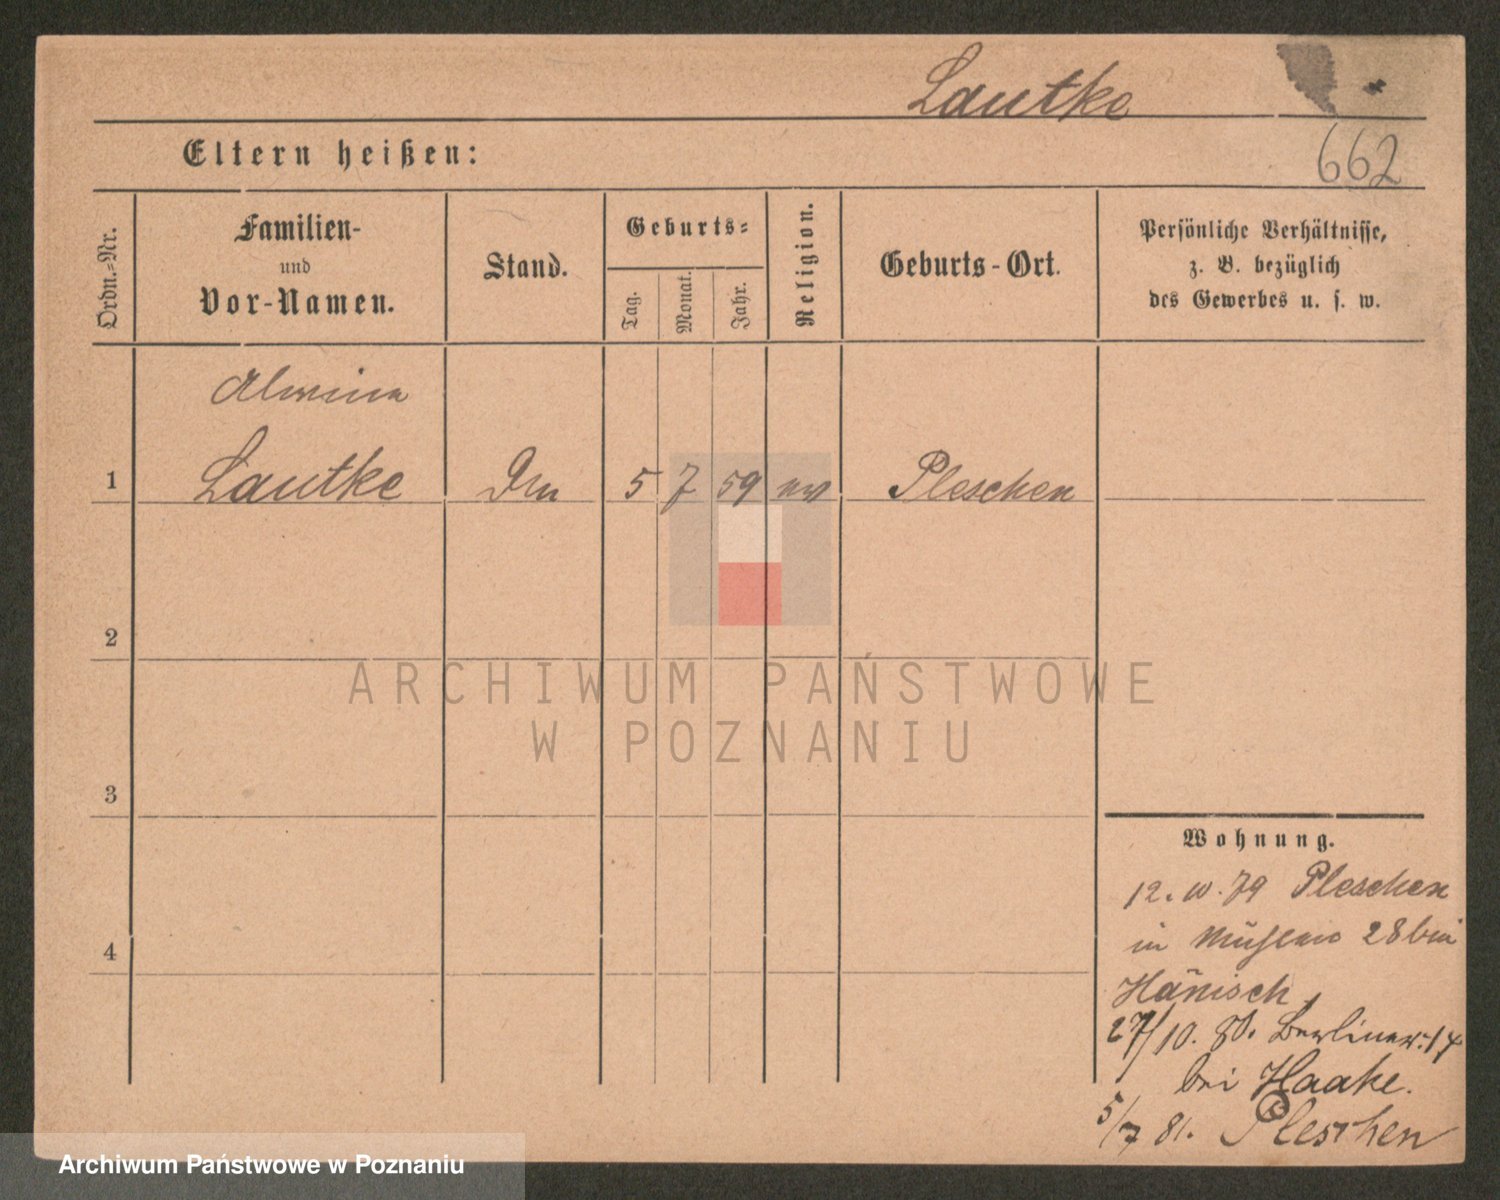 Lautke
Eltern heißen:
662
Ordn.-Nr.
Familien-
und
Vor-Namen.
Stand.
Geburts-
Tag.
Monat.
Jahr.
Religion.
Geburts-Ort.
Persönliche Verhältnisse,
z. B. bezüglich
des Gewerbes u. s. w.
Alwine
1 Lautke 5 7 59 Pleschen
2
3
4
ARCHIWUM PAŃSTWOWE
W POZNANIU
Wohnung.
12. 10. 79 Pleschen
in 28 bei
Hänisch
27/10. 80. Berliner. 17
bei Haake.
5/7 81. Pleschen
Archiwum Państwowe w Poznaniu